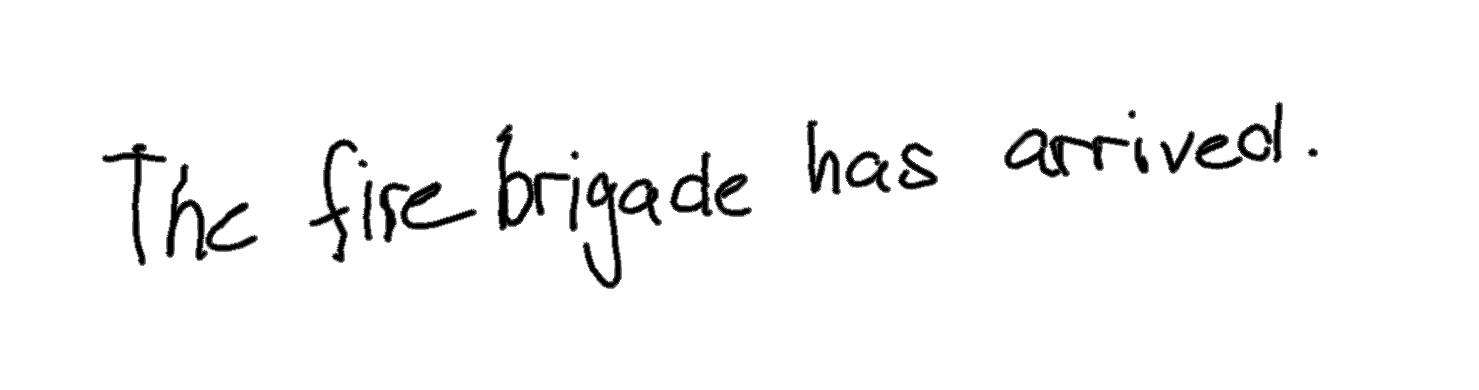 The fire brigade has arrived.